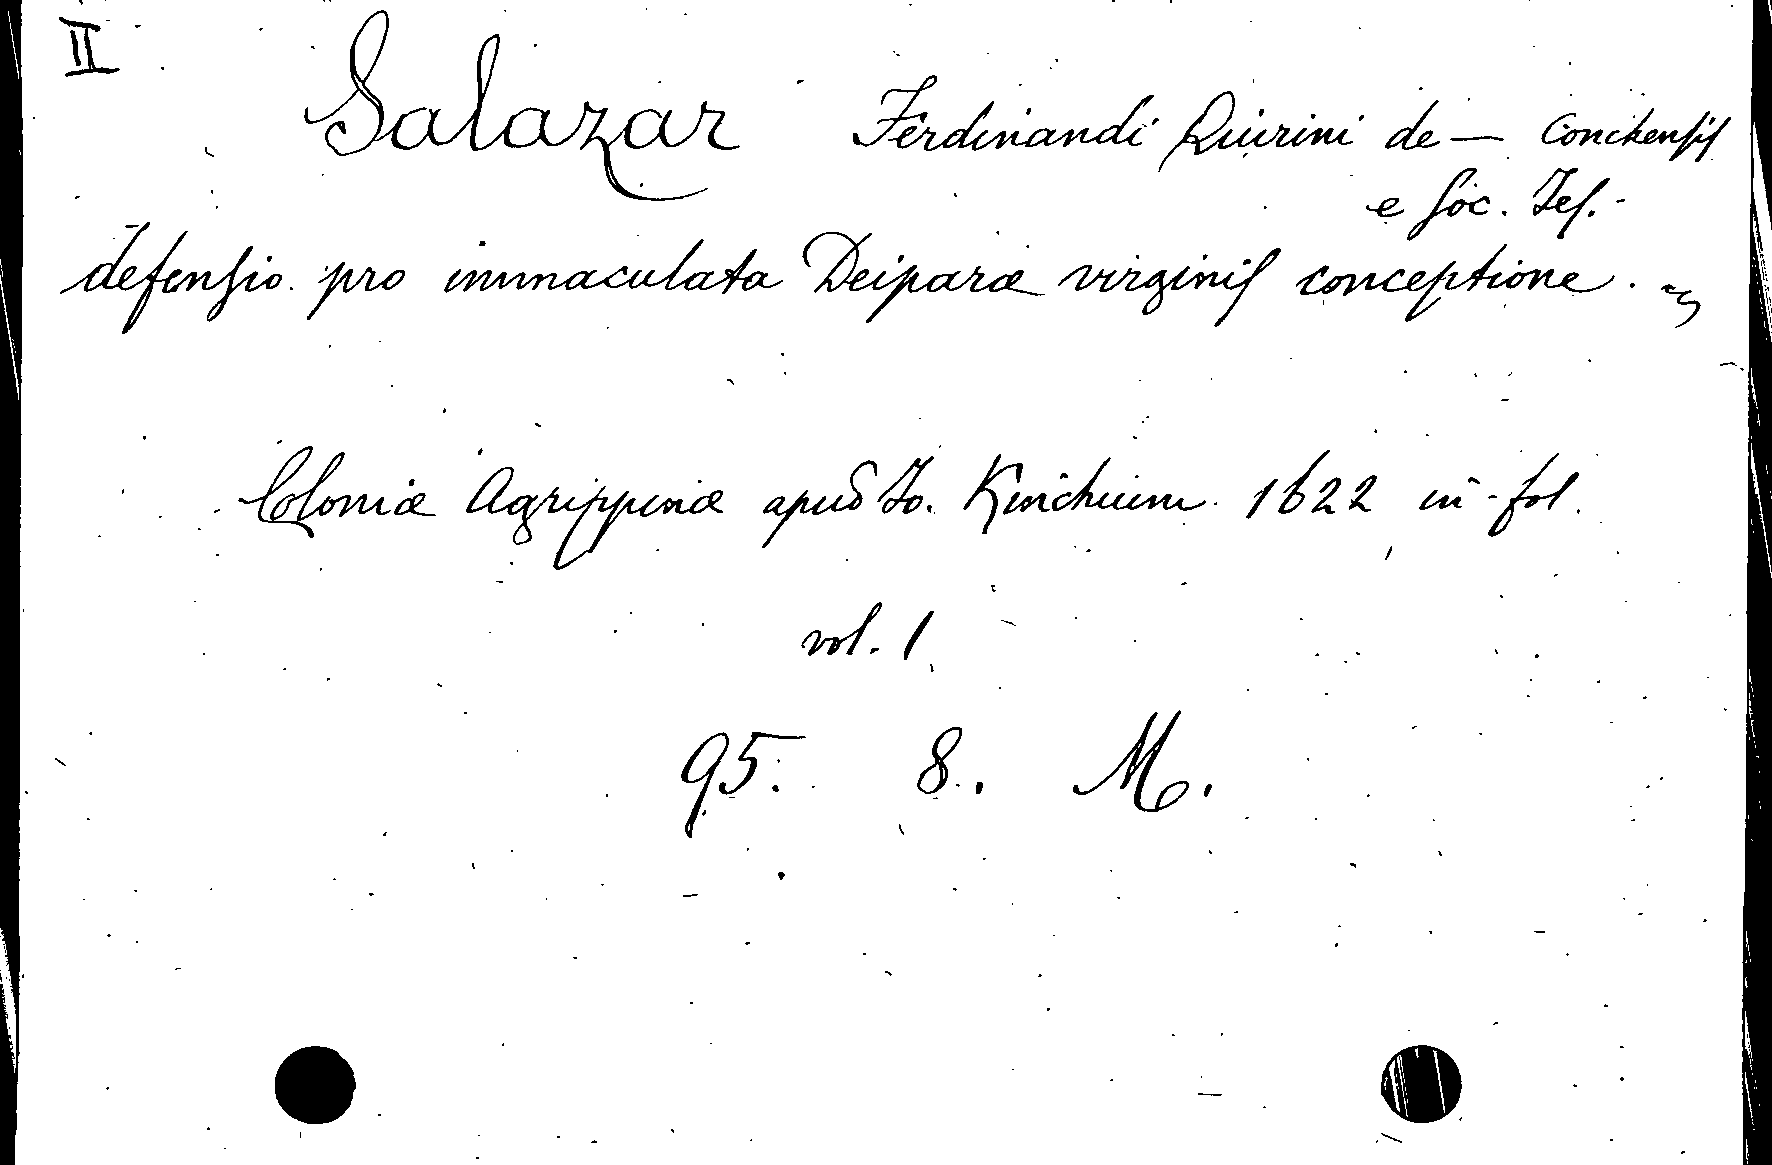 II
Salazar Ferdinandi Quirini de — Conchensis
e Soc. Jes.
defensio pro immaculata Deiparæ virginis conceptione.
Coloniæ Agrippinæ apud Jo. Kinchium 1622 in-fol.
vol. 1
95. 8. M.